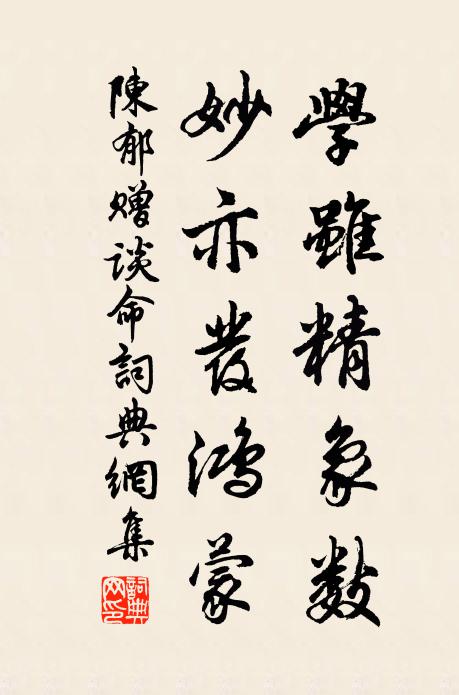 學雖精象數
妙亦發鴻蒙
陳郁贈談命詞典網集